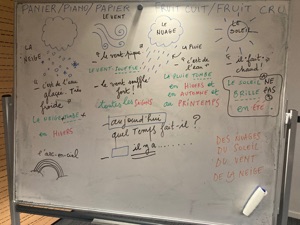 PANIER/PIANO/PAPIER
FRUIT CUIT/FRUIT CRU
LE VENT
LE NUAGE
LE SOLEIL
LA NEIGE
LA PLUIE
"c'est de l'eau
glacée. Très
froide"
LE VENT SOUFFLE
"le vent souffle
fort!
"c'est de
l'eau"
LA PLUIE TOMBE
en HIVER et
en AUTOMNE et
en PRINTEMPS
"il fait
chaud!
LE SOLEIL NE
BRILLE PAS
en ÉTÉ
en HIVER
aujourd'hui
quel Temps fait-il?
il y a
l'arc-en-ciel
DES NUAGES
DU SOLEIL
DU VENT
DE LA NEIGE